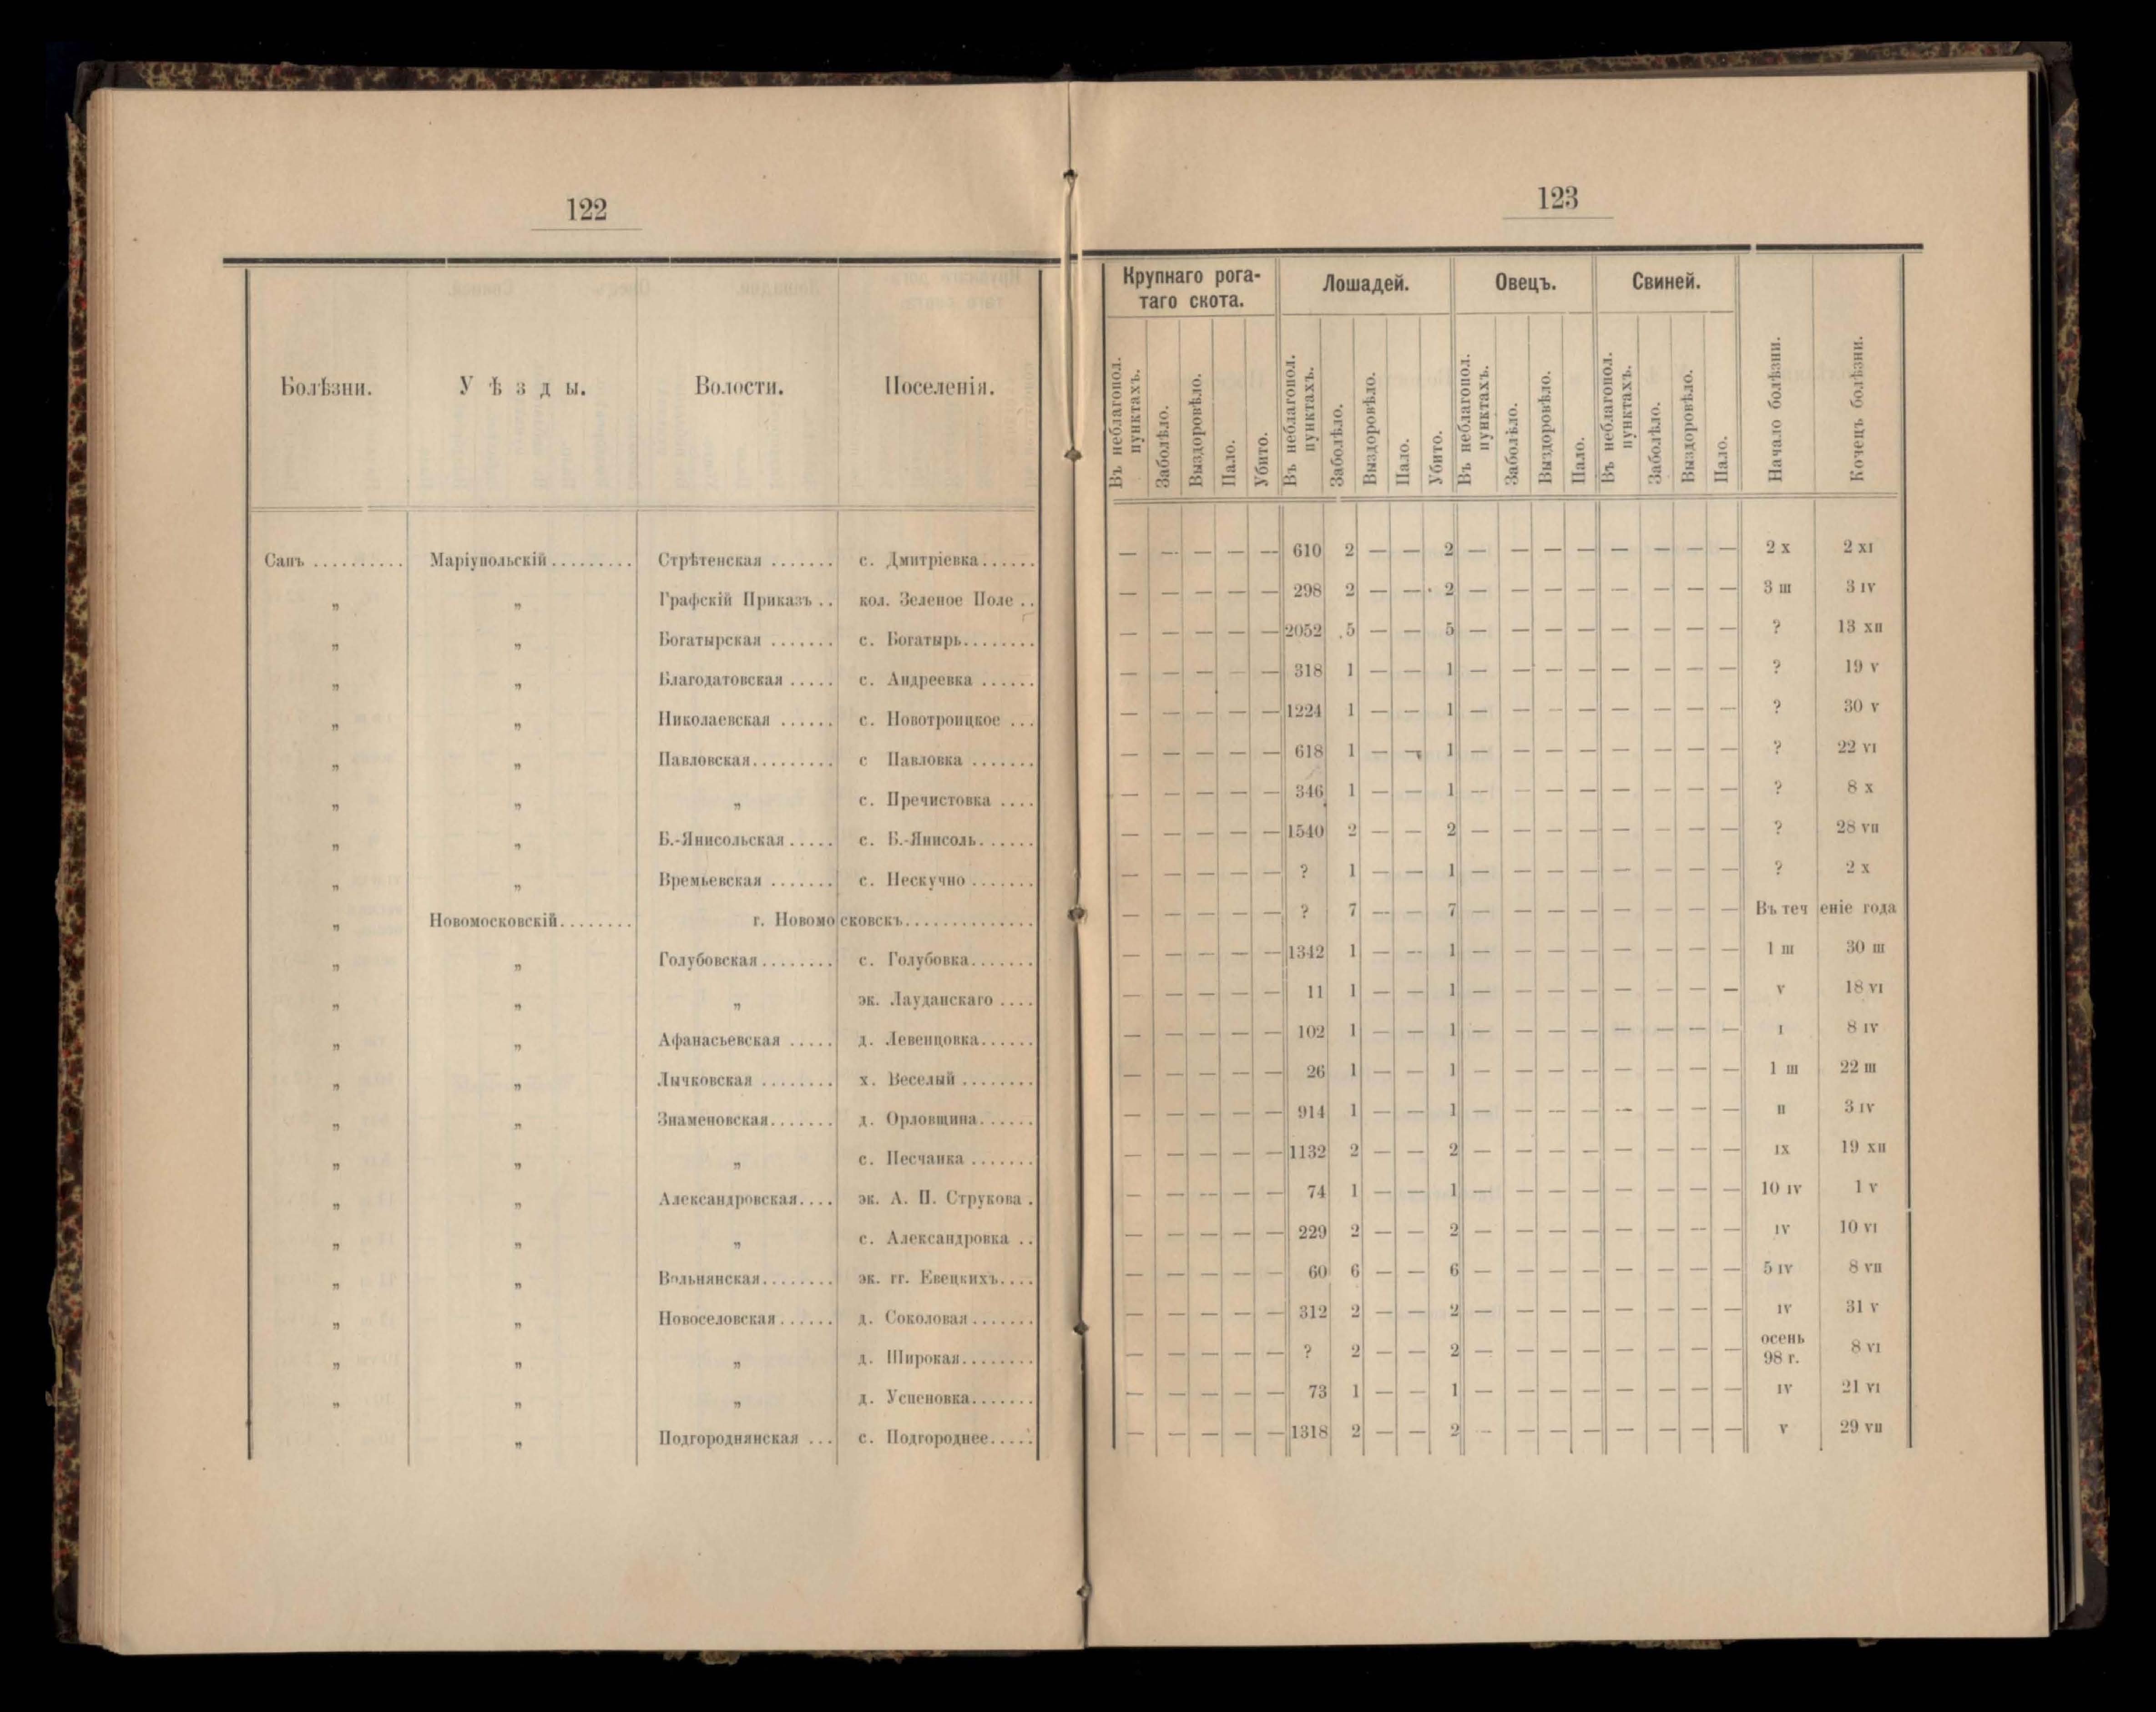 122
Болѣзни. Уѣзды. Волости. Поселенія.
Сапъ .......... Маріупольскій ......... Стрѣтенская ....... с. Дмитріевка......
„ „ Графскій Приказъ .. кол. Зеленое Поле ..
„ „ Богатырская ....... с. Богатырь........
„ „ Благодатовская ..... с. Андреевка ......
„ „ Николаевская ...... с. Новотроицкое ...
„ „ Павловская......... с Павловка .......
„ „ „ с. Пречистовка ....
„ „ Б.-Янисольская ..... с. Б.-Янисоль......
„ „ Времьевская ....... с. Нескучно .......
„ Новомосковскій........ г. Новомосковскъ..............
„ „ Голубовская ........ с. Голубовка.......
„ „ „ эк. Лауданскаго ....
„ „ Афанасьевская ..... д. Левенцовка......
„ „ Лычковская ........ х. Веселый ........
„ „ Знаменовская....... д. Орловщина......
„ „ „ с. Песчанка .......
„ „ Александровская.... эк. А. П. Струкова .
„ „ „ с. Александровка ..
„ „ Вольнянская........ эк. гг. Евецкихъ....
„ „ Новоселовская ...... д. Соколовая .......
„ „ „ д. Широкая........
„ „ „ д. Успеновка.......
„ Подгороднянская ... с. Подгороднее.....
123
Крупнаго рога-
таго скота. Лошадей. Овецъ. Свиней.
Въ неблагопол. пунктахъ. Заболѣло. Выздоровѣло. Пало. Убито. Въ неблагопол. пунктахъ. Заболѣло. Выздоровѣло. Пало. Убито. Въ неблагопол. пунктахъ. Заболѣло. Выздоровѣло. Пало. Въ неблагопол. пунктахъ. Заболѣло. Выздоровѣло. Пало. Начало болѣзни. Конецъ болѣзни.
— — — — — 610 2 — — 2 — — — — — — — — 2 x 2 xi
— — — — — 298 2 — — 2 — — — — — — — — 3 iii 3 iv
— — — — — 2052 5 — — 5 — — — — — — — — ? 13 xii
— — — — — 318 1 — — 1 — — — — — — — — ? 19 v
— — — — — 1224 1 — — 1 — — — — — — — — ? 30 v
— — — — — 618 1 — — 1 — — — — — — — — ? 22 vi
— — — — — 346 1 — — 1 — — — — — — — — ? 8 x
— — — — — 1540 2 — — 2 — — — — — — — — ? 28 vii
— — — — — ? 1 — — 1 — — — — — — — — ? 2 x
— — — — — ? 7 — — 7 — — — — — — — — Въ теченіе года
— — — — — 1342 1 — — 1 — — — — — — — — 1 iii 30 iii
— — — — — 11 1 — — 1 — — — — — — — — v 18 vi
— — — — — 102 1 — — 1 — — — — — — — — i 8 iv
— — — — — 26 1 — — 1 — — — — — — — — 1 iii 22 iii
— — — — — 914 1 — — 1 — — — — — — — — ii 3 iv
— — — — — 1132 2 — — 2 — — — — — — — — ix 19 xii
— — — — — 74 1 — — 1 — — — — — — — — 10 iv 1 v
— — — — — 229 2 — — 2 — — — — — — — — iv 10 vi
— — — — — 60 6 — — 6 — — — — — — — — 5 iv 8 vii
— — — — — 312 2 — — 2 — — — — — — — — iv 31 v
— — — — — ? 2 — — 2 — — — — — — — — осень 98 г. 8 vi
— — — — — 73 1 — — 1 — — — — — — — — iv 21 vi
— — — — — 1318 2 — — 2 — — — — — — — — v 29 vii